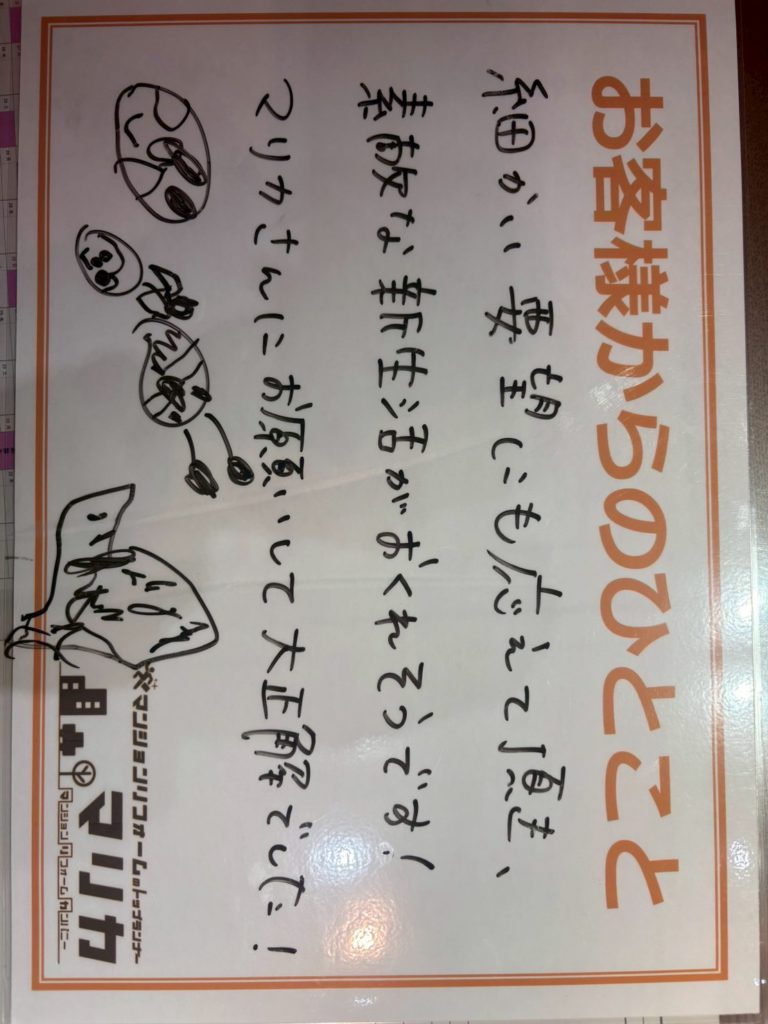 お客様からのひとこと
細かい要望にも応えて頂き、
素敵な新生活がおくれそうです!
マリカさんにお願いして大正解でした!
マンションリフォームのトップランナー
マリカ
マンションリフォームカンパニー